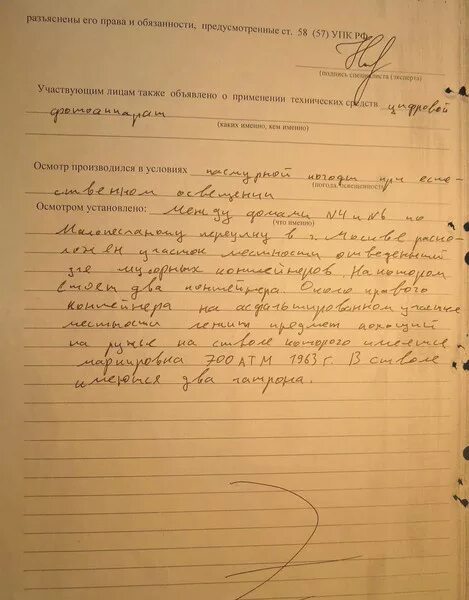 разъяснены его права и обязанности, предусмотренные ст. 58 (57) УПК РФ
(подпись специалиста (эксперта)
Участвующим лицам также объявлено о применении технических средств цифровой
фотоаппарат
(каких именно, кем именно)
Осмотр производился в условиях пасмурной погоды при есте-
(погода, освещенность)
ственном освещении
Осмотром установлено: Между домами №4 и №6 по
(что именно)
Малопесчаному переулку в г. Москве распо-
ложен участок местности отведенный
для мусорных контейнеров. На котором
стоят два контейнера. Около правого
контейнера на асфальтированном участке
местности лежит предмет похожий
на ружье на стволе которого имеется
маркировка 700 АТМ 1963 г. В стволе
имеются два патрона.